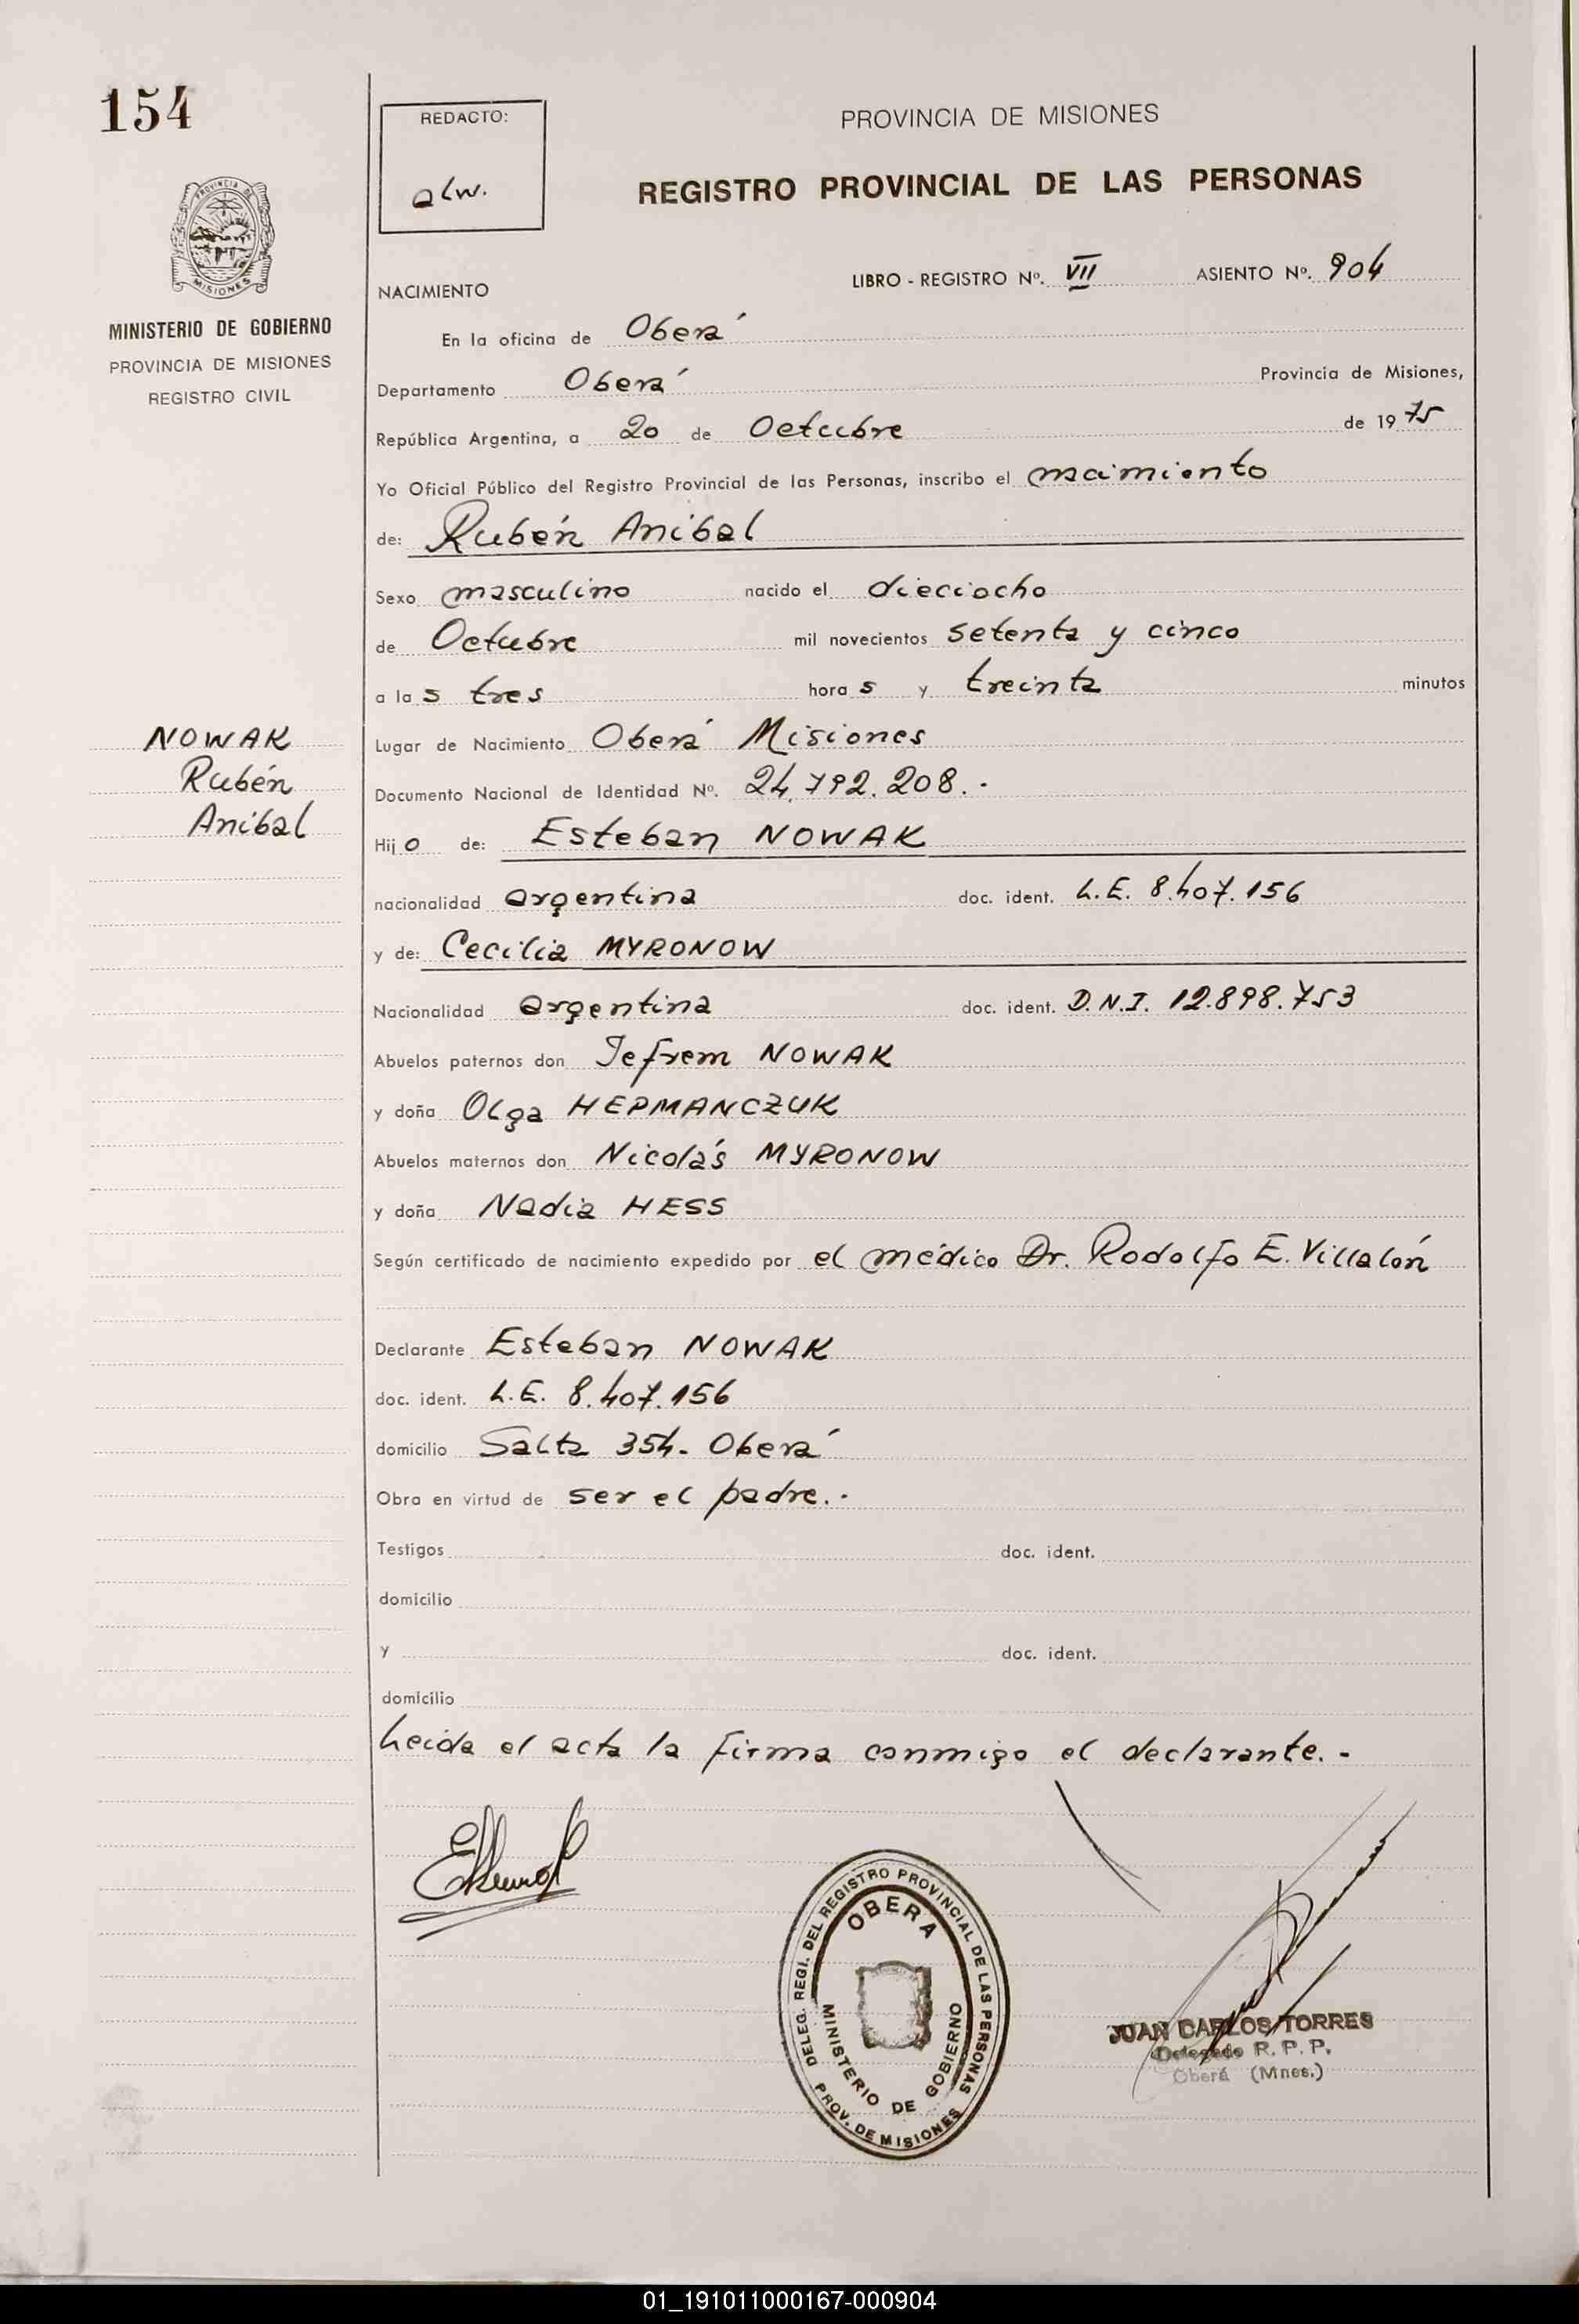 154
PROVINCIA DE
MISIONES
MINISTERIO DE GOBIERNO
PROVINCIA DE MISIONES
REGISTRO CIVIL
NOWAK
Rubén
Anibal
REDACTO:
alw.
PROVINCIA DE MISIONES
REGISTRO PROVINCIAL DE LAS PERSONAS
LIBRO - REGISTRO Nº. VII ASIENTO Nº. 904
NACIMIENTO
En la oficina de Oberá
Departamento Oberá Provincia de Misiones,
República Argentina, a 20 de Octubre de 1975
Yo Oficial Público del Registro Provincial de las Personas, inscribo el nacimiento
de: Rubén Anibal
Sexo masculino nacido el dieciocho
de Octubre mil novecientos setenta y cinco
a las tres horas y treinta minutos
Lugar de Nacimiento Oberá Misiones
Documento Nacional de Identidad Nº. 24.792.208.-
Hijo de: Esteban NOWAK
nacionalidad argentina doc. ident. L.E. 8.407.156
y de: Cecilia MYRONOW
Nacionalidad argentina doc. ident. D.N.I. 12.898.753
Abuelos paternos don Jefrem NOWAK
y doña Olga HEPMANCZUK
Abuelos maternos don Nicolás MYRONOW
y doña Nadia HESS
Según certificado de nacimiento expedido por el médico Dr. Rodolfo E. Villalón
Declarante Esteban NOWAK
doc. ident. L.E. 8.407.156
domicilio Salta 354- Oberá
Obra en virtud de ser el padre.-
Testigos doc. ident.
domicilio
y doc. ident.
domicilio
Leida el acta la firma conmigo el declarante.-
DELEG. REGI. DEL REGISTRO PROVINCIAL DE LAS PERSONAS
OBERA
MINISTERIO DE GOBIERNO
PROV. DE MISIONES
JUAN CARLOS TORRES
Delegado R. P. P.
Oberá (Mnes.)
01_191011000167-000904